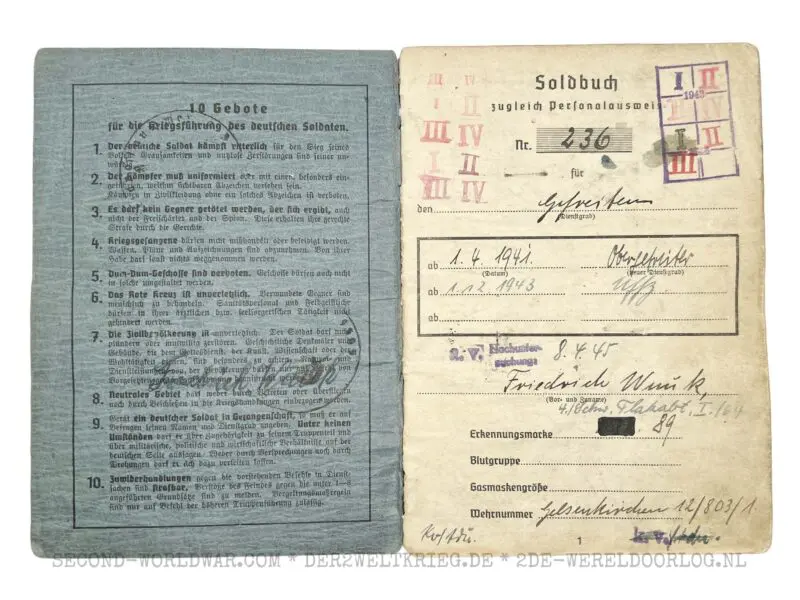 10 Gebote
für die Kriegsführung des deutschen Soldaten.
1. Der deutsche Soldat kämpft ritterlich für den Sieg seines
Volkes. Grausamkeiten und nutzlose Zerstörungen sind seiner un-
würdig.
2. Der Kämpfer muß uniformiert oder mit einem besonders ein-
geführten, weithin sichtbaren Abzeichen versehen sein.
Kämpfen in Zivilkleidung ohne ein solches Abzeichen ist verboten.
3. Es darf kein Gegner getötet werden, der sich ergibt, auch
nicht der Freischärler und der Spion. Diese erhalten ihre gerechte
Strafe durch die Gerichte.
4. Kriegsgefangene dürfen nicht mißhandelt oder beleidigt werden.
Waffen, Pläne und Aufzeichnungen sind abzunehmen. Von ihrer
Habe darf sonst nichts weggenommen werden.
5. Dum-Dum-Geschosse sind verboten. Geschosse dürfen auch nicht
in solche umgestaltet werden.
6. Das Rote Kreuz ist unverletzlich. Verwundete Gegner sind
menschlich zu behandeln. Sanitätspersonal und Feldgeistliche
dürfen in ihrer ärztlichen bzw. seelsorgerischen Tätigkeit nicht
gehindert werden.
7. Die Zivilbevölkerung ist unverletzlich. Der Soldat darf nicht
plündern oder mutwillig zerstören. Geschichtliche Denkmäler und
Gebäude, die dem Gottesdienst, der Kunst, Wissenschaft oder der
Wohltätigkeit dienen, sind besonders zu achten.
8. Neutrales Gebiet darf weder durch Betreten oder Überfliegen
noch durch Beschießen in die Kriegshandlungen einbezogen werden.
9. Gerät ein deutscher Soldat in Gefangenschaft, so muß er auf
Befragen seinen Namen und Dienstgrad angeben. Unter keinen
Umständen darf er über Zugehörigkeit zu seinem Truppenteil und
über militärische, politische und wirtschaftliche Verhältnisse auf der
deutschen Seite aussagen. Weder durch Versprechungen noch durch
Drohungen darf er sich dazu verleiten lassen.
10. Zuwiderhandlungen gegen die vorstehenden Befehle in Dienst-
sachen sind strafbar. Verstöße des Feindes gegen die unter 1–8
angeführten Grundsätze sind zu melden. Vergeltungsmaßregeln
sind nur auf Befehl der höheren Truppenführung zulässig.
Soldbuch
zugleich Personalausweis
Nr. 236
für
den Gefreiten
(Dienstgrad)
ab 1.4.1941. Obergefreiter
(Datum) (neuer Dienstgrad)
ab 1.12.1943 Uffz
ab
III IV
I II
III IV
I II
1943
I II
III
8.4.45
Friedrich
(Vor- und Zuname)
Erkennungsmarke 89
Blutgruppe
Gasmaskengröße
Wehrnummer Gelsenkirchen 12/803/1
1
k.v.
SECOND-WORLDWAR.COM * DER2WELTKRIEG.DE * 2DE-WERELDOORLOG.NL